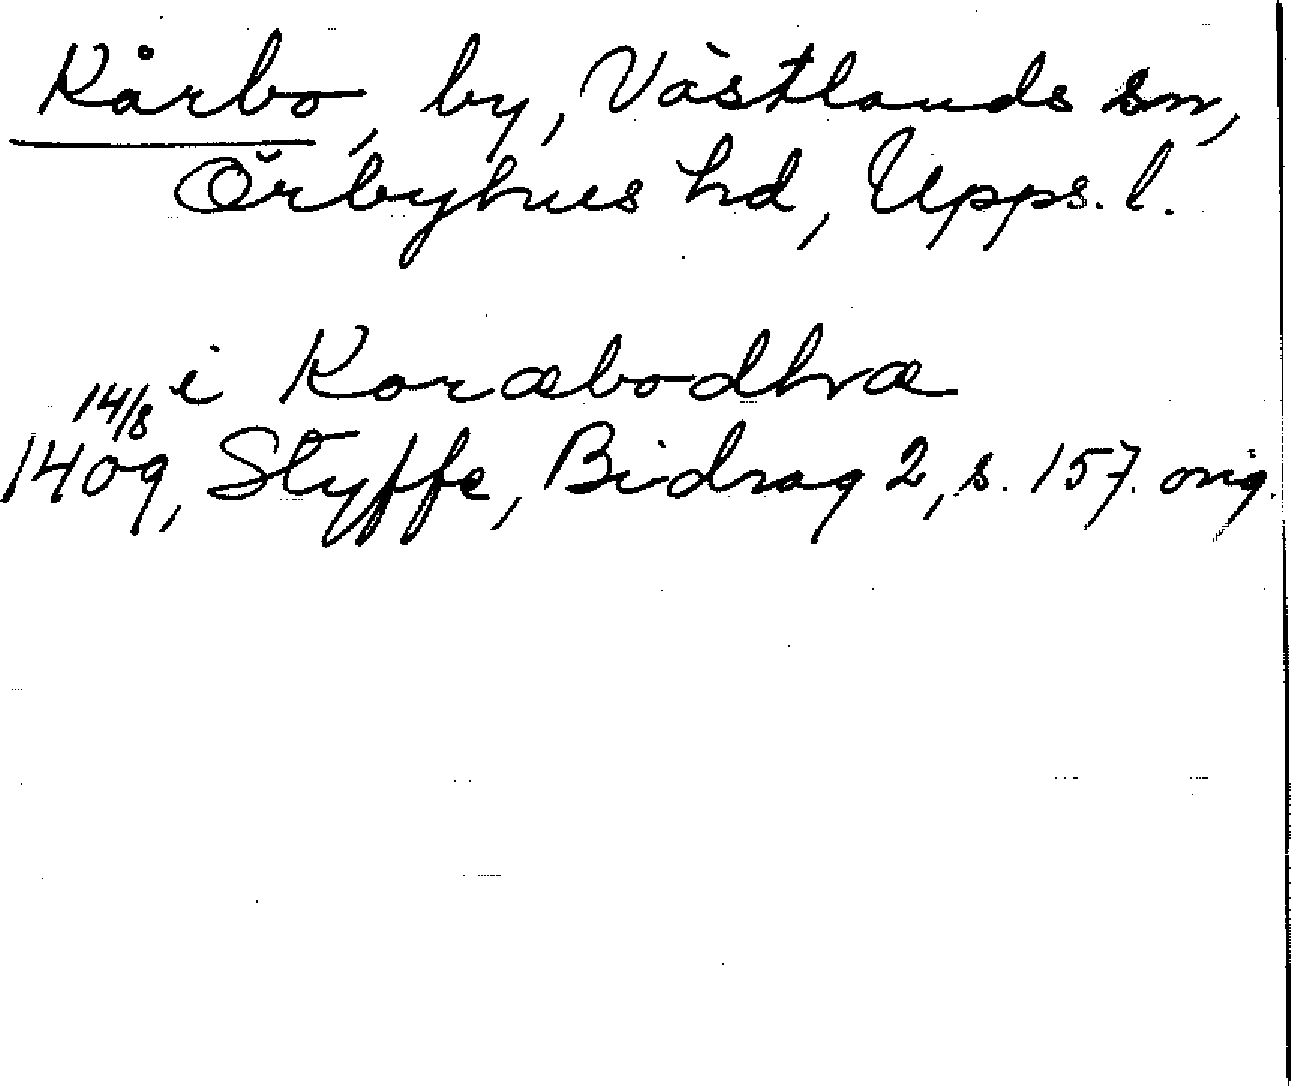 Kårbo, by, Västlands sn,
Örbyhus hd, Upps. l.
i Koræbodhræ
14/8
1409, Styffe, Bidrag 2, s. 157. orig.